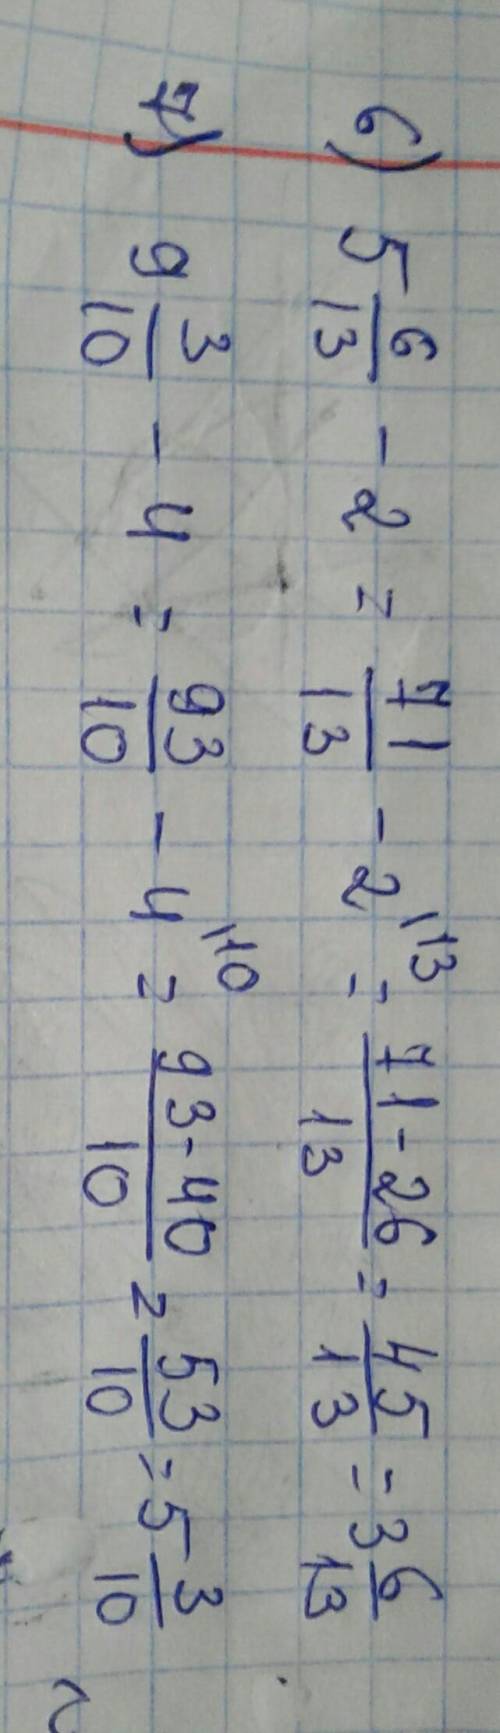 6) 5 6/13 - 2 = 71/13 - 2^{\13} = (71-26)/13 = 45/13 = 3 6/13
7) 9 3/10 - 4 = 93/10 - 4^{\10} = (93-40)/10 = 53/10 = 5 3/10